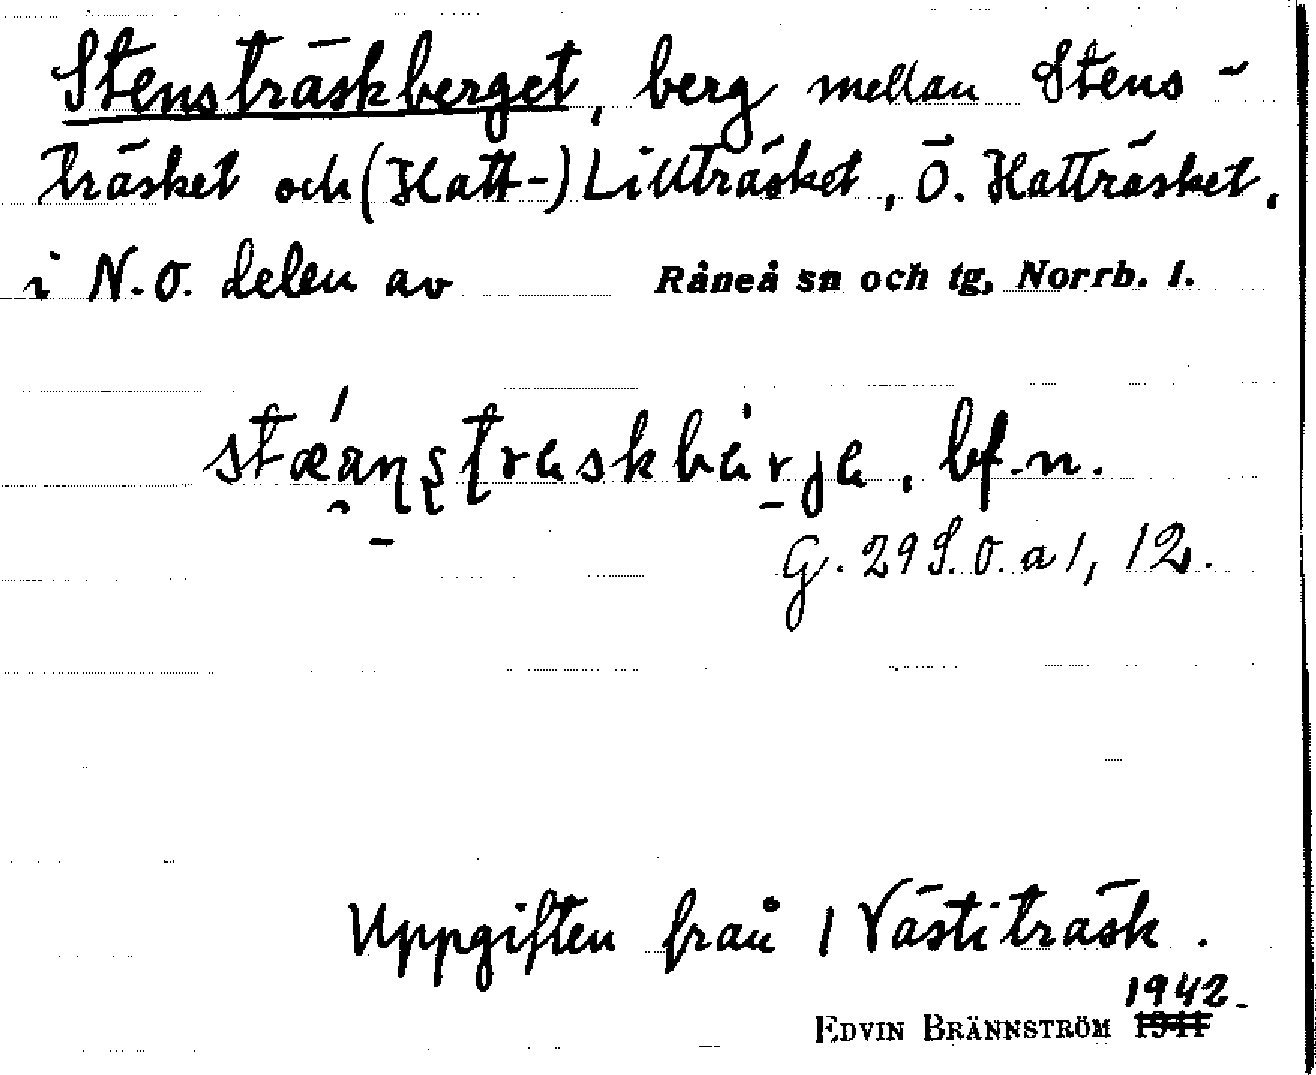 Stensträskberget, berg mellan Stens-
träsket och (Hatt-) Lillträsket, Ö. Hatträsket,
i N.O. delen av Råneå sn och tg, Norrb. l.
bf.n.
G. 29 S.O. a 1, 12.
Uppgiften från 1 Västiträsk.
1942.
EDVIN BRÄNNSTRÖM 1941